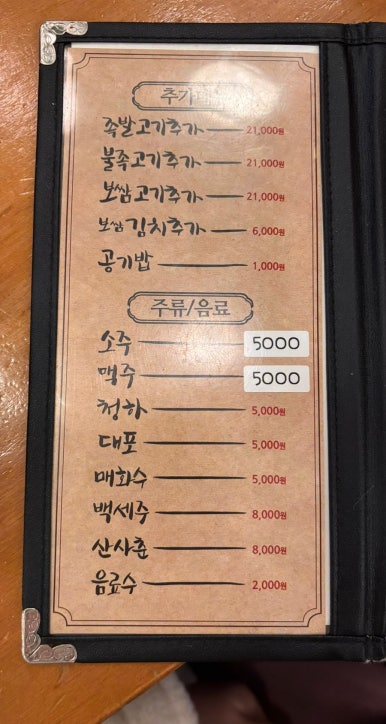 추가
족발고기추가 21,000원
불족고기추가 21,000원
보쌈고기추가 21,000원
보쌈김치추가 6,000원
공기밥 1,000원
주류/음료
소주 5000
맥주 5000
청하 5,000원
대포 5,000원
매화수 5,000원
백세주 8,000원
산사춘 8,000원
음료수 2,000원